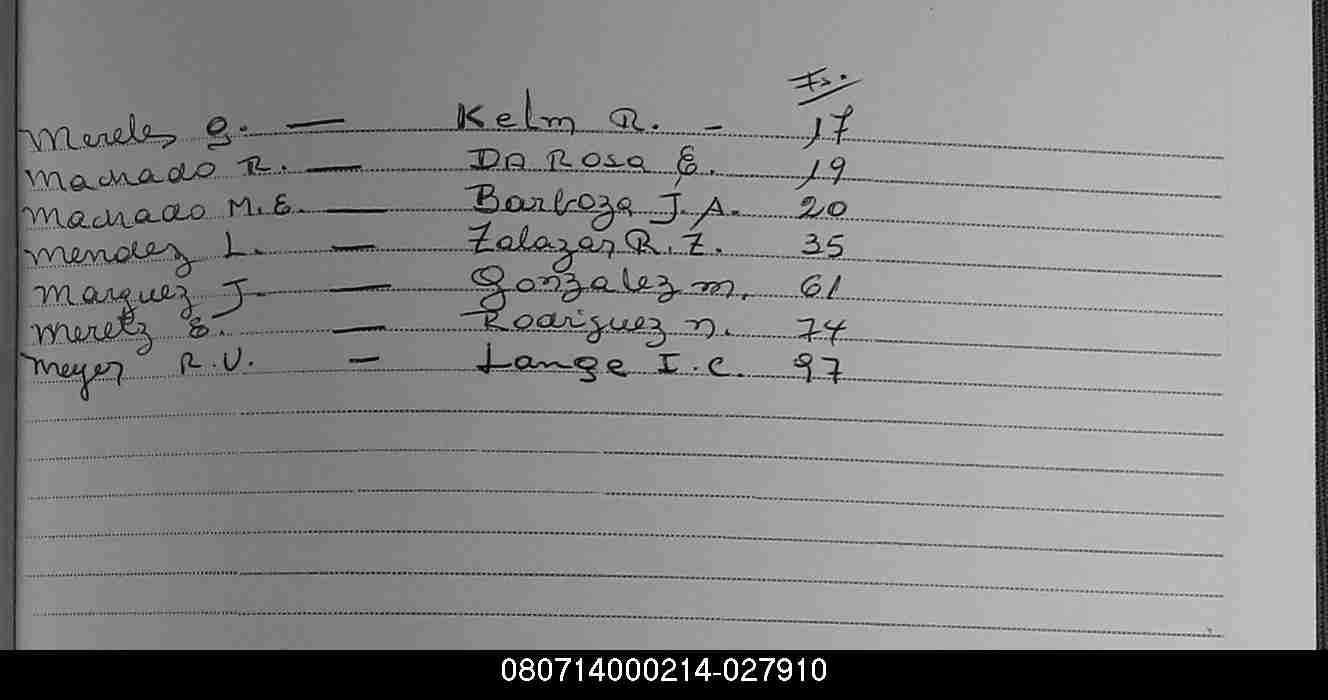 Fs.
Mereles G. — Kelm R. - 17
Machado R. — Da Rosa E. 19
Machado M.E. — Barboza J.A. 20
Mendez L. — Zalazar R.Z. 35
Marquez J. — Gonzalez M. 61
Meretz E. — Rodriguez N. 74
Meyer R.V. — Lange I.C. 97
080714000214-027910